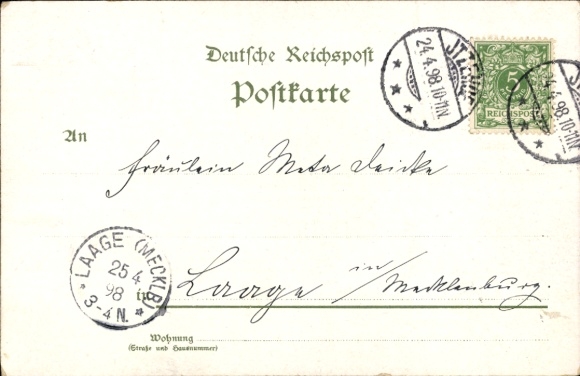 Deutsche Reichspost
Postkarte
24.4.98.10-11N.
5
REICHSPOST
24.4.98.10-11N.
An
Fräulein Meta Deicke
LAAGE (MECKLB)
25 4
98
3-4 N.
in Laage in/Mecklenburg.
Wohnung
(Straße und Hausnummer)